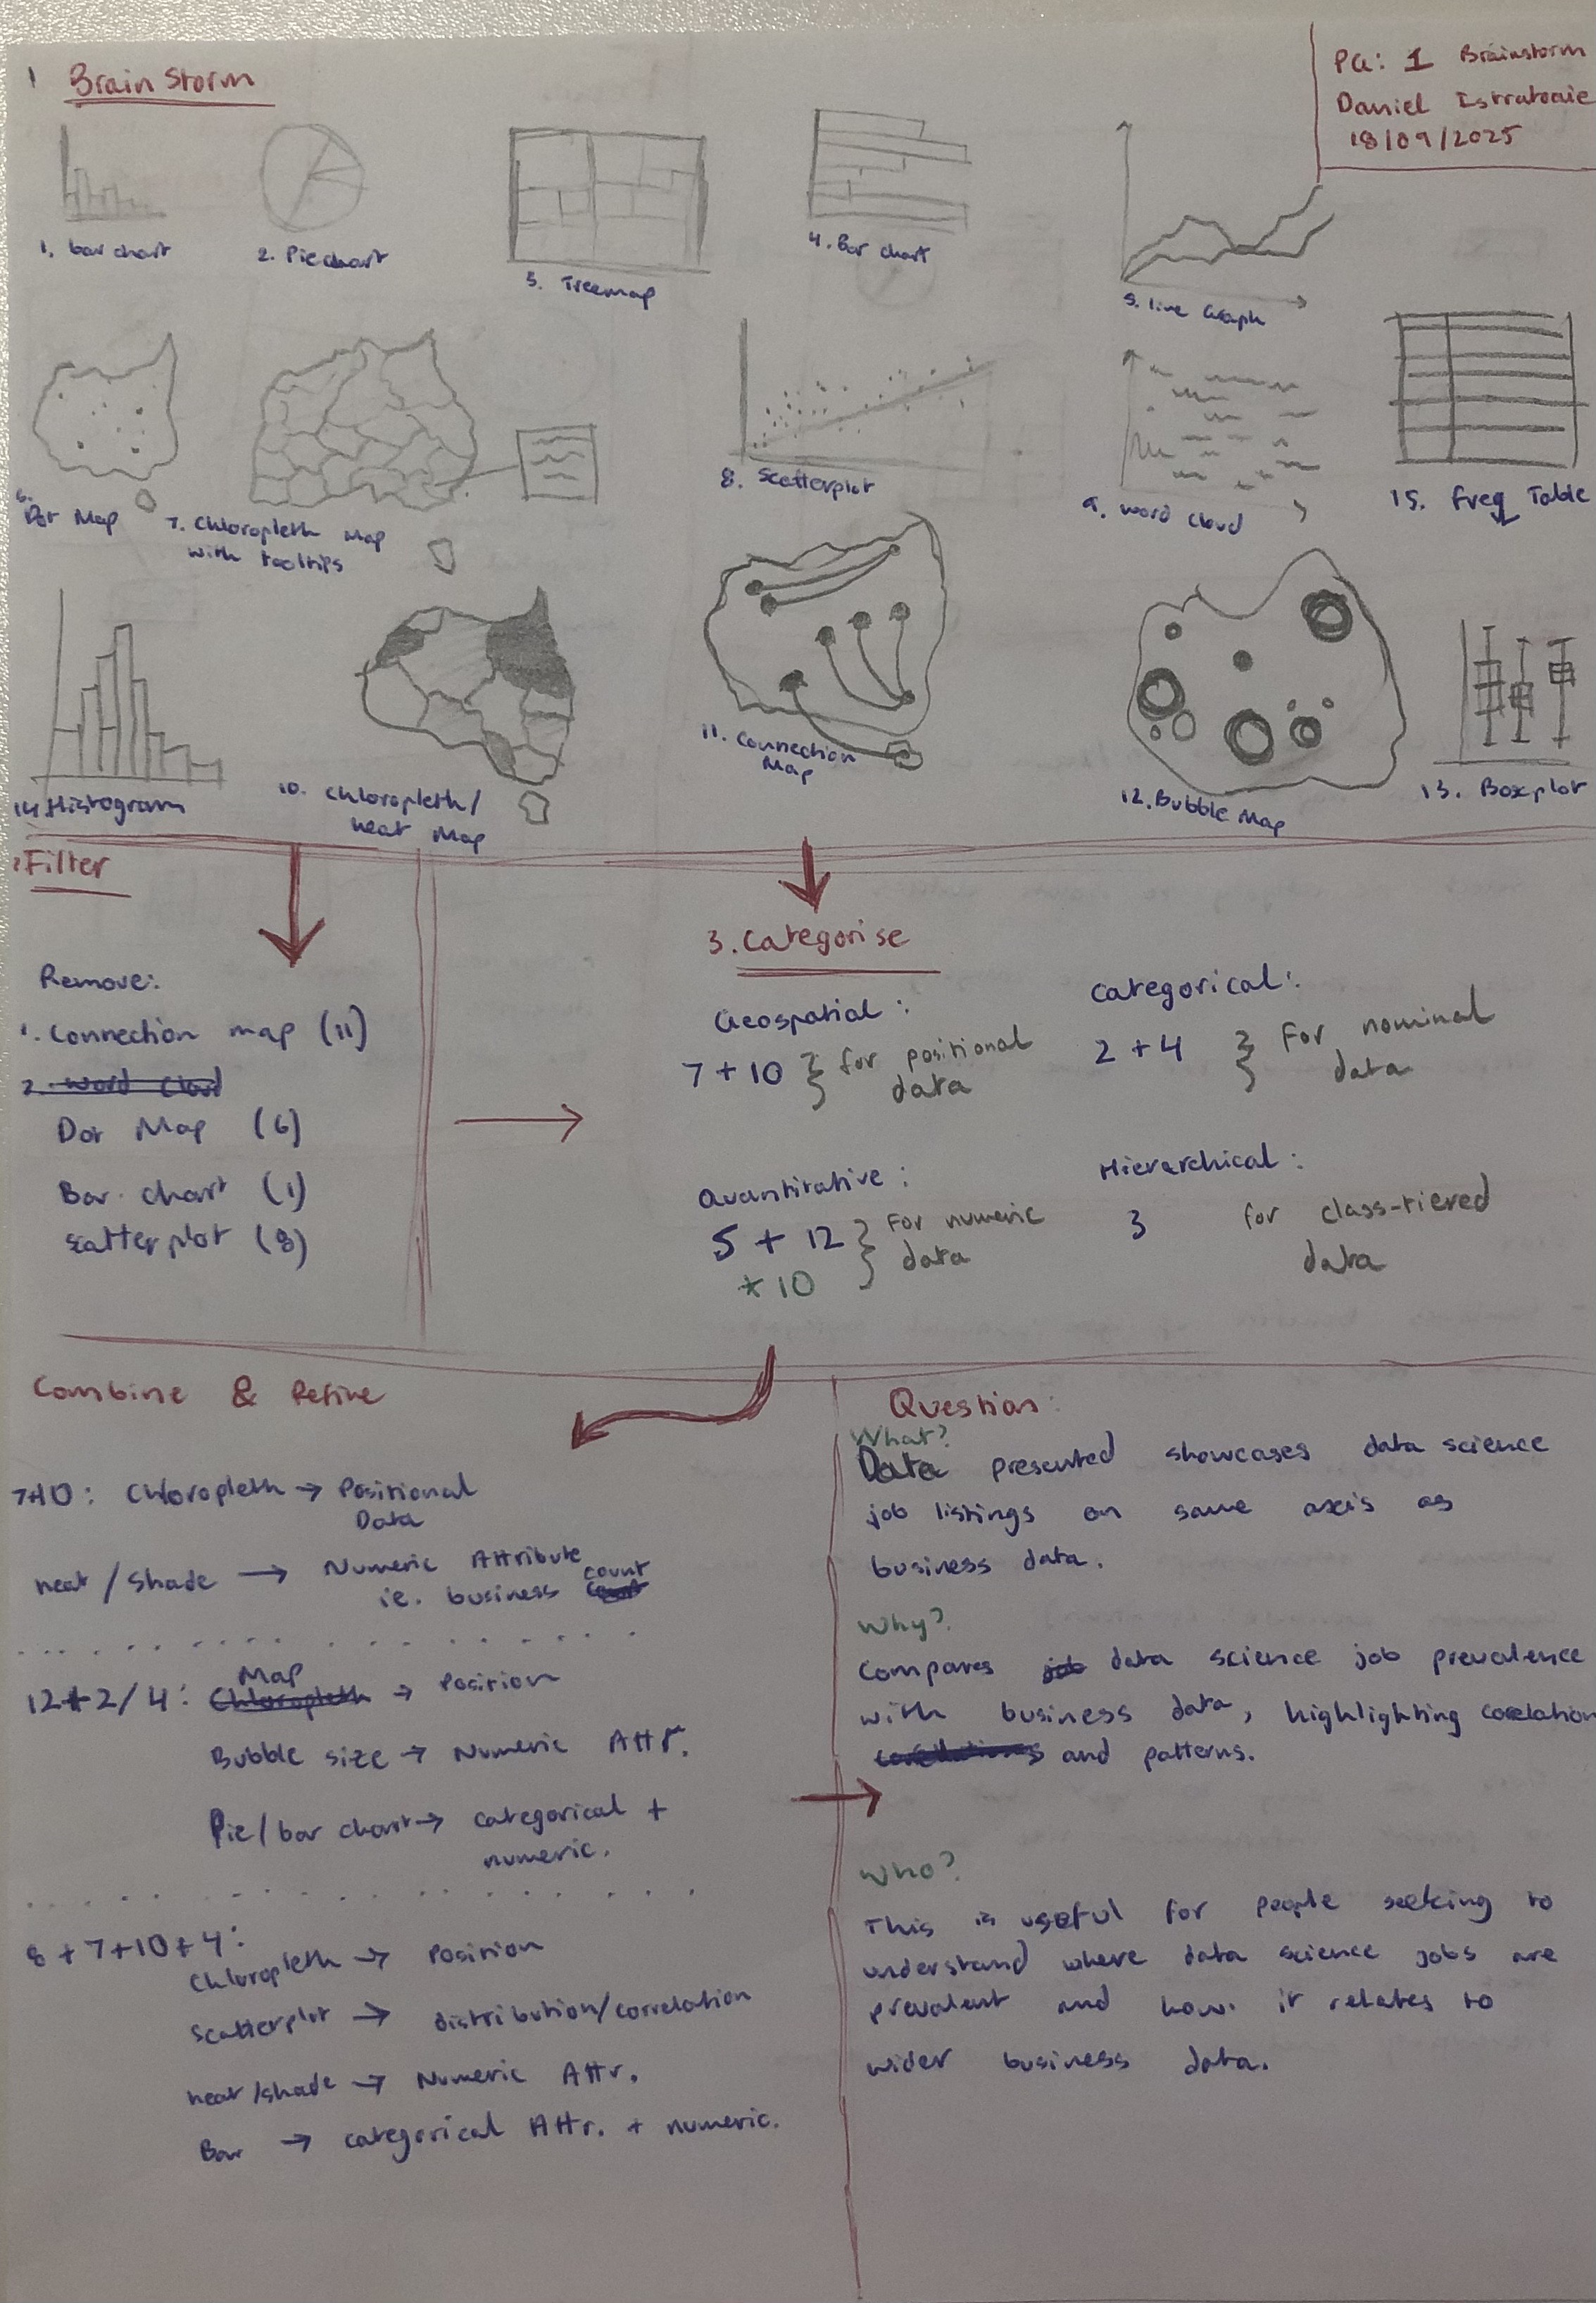 1 Brain Storm
PG: 1 Brainstorm
Daniel
18/09/2025
1. bar chart
2. Pie chart
3. Treemap
4. Bar chart
5. line Graph
6.
Dot Map
7. Chloropleth Map
with tooltips
8. Scatterplot
9. word cloud
15. Freq Table
14. Histogram
10. Chloropleth/
heat Map
11. Connection
Map
12. Bubble Map
13. Boxplot
Filter
Remove:
1. Connection map (11)
2. word cloud
Dot Map (6)
Bar chart (1)
Scatterplot (8)
3. Categorise
Geospatial:
7 + 10 } for positional
data
Categorical:
2 + 4 } For nominal
data
Quantitative:
5 + 12 } For numeric
data
* 10
Hierarchical:
3 for class-tiered
data
Combine & Refine
7+10: Chloropleth → Positional
Data
heat / shade → Numeric Attribute
ie. business count
12+2/4: Chloropleth Map → Position
Bubble size → Numeric Attr.
Pie/bar chart → categorical +
numeric.
8+7+10+4:
Chloropleth → Position
Scatterplot → distribution/correlation
heat/shade → Numeric Attr.
Bar → categorical Attr. + numeric.
Question:
What?
Data presented showcases data science
job listings on same axis as
business data.
Why?
Compares job data science job prevalence
with business data, highlighting corelation
and patterns.
Who?
This is useful for people seeking to
understand where data science jobs are
prevalent and how it relates to
wider business data.